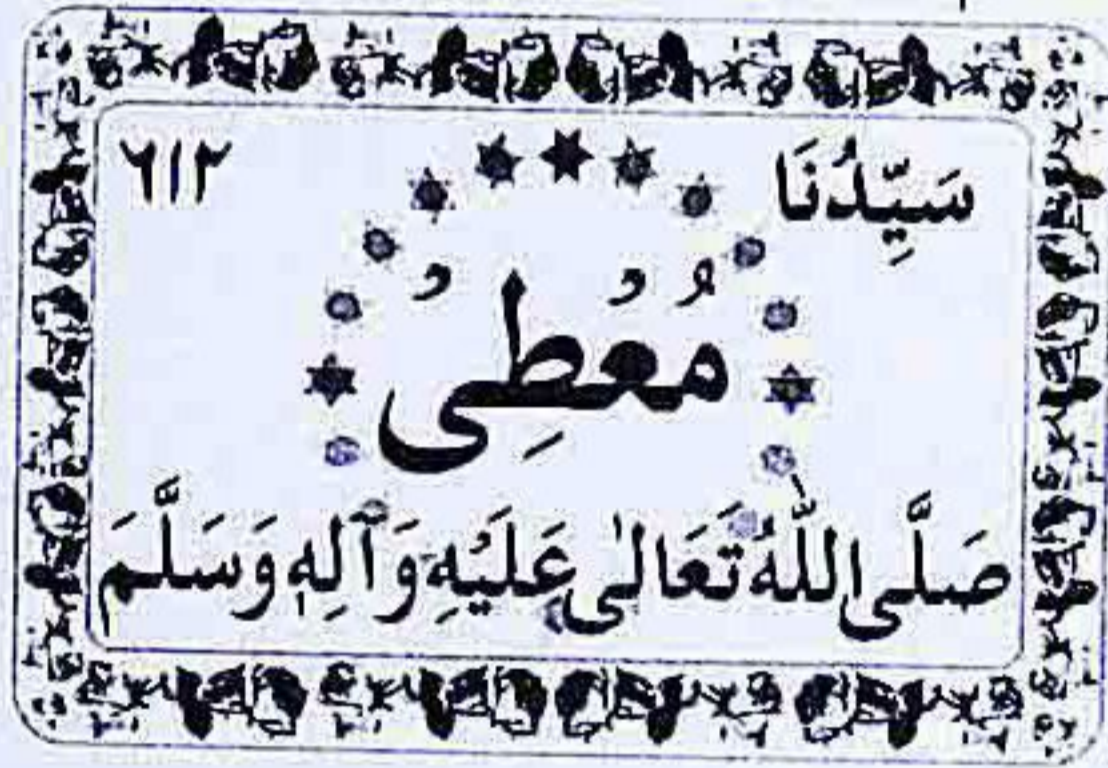 سَيِّدُنَا ٦١٢
مُعْطِىْ
صَلَّى اللّٰهُ تَعَالٰى عَلَيْهِ وَآلِهٖ وَسَلَّمَ